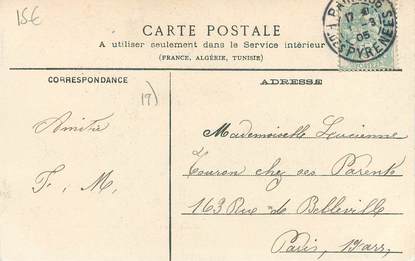 15€
CARTE POSTALE
A utiliser seulement dans le Service intérieur
(FRANCE, ALGÉRIE, TUNISIE)
CORRESPONDANCE
ADRESSE
17)
Amitié
F. M.
Mademoiselle Lucienne
Touron chez ses Parents
163 Rue de Belleville
Paris,
17
05
PYRENEES